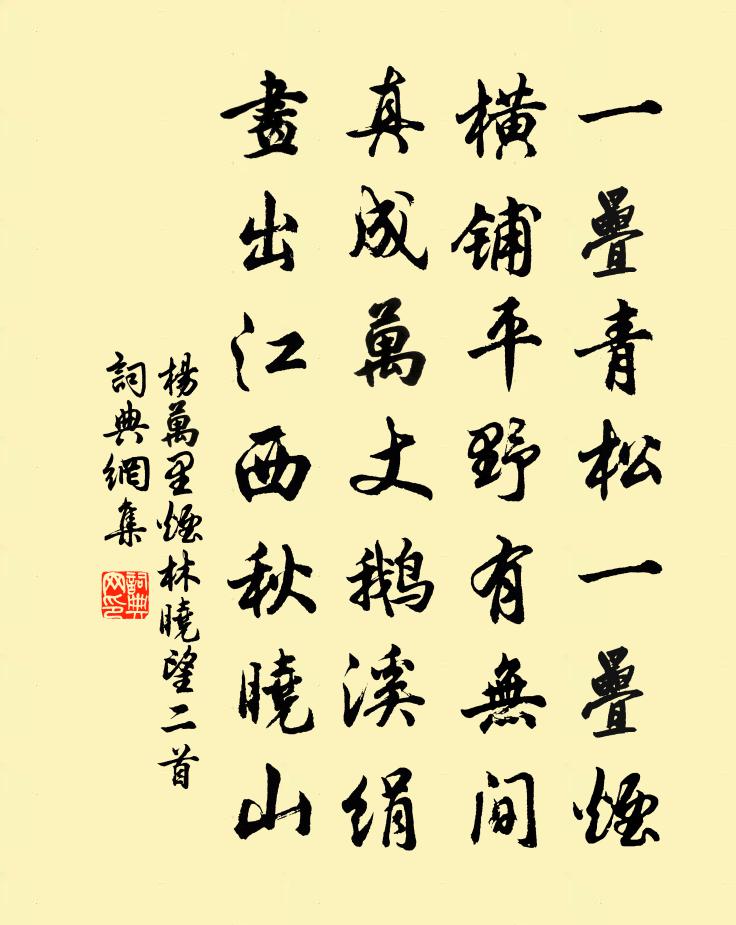 一疊青松一疊煙
橫鋪平野有無間
真成萬丈鵝溪絹
畫出江西秋曉山
楊萬里煙林曉望二首
詞典網集
詞典网印